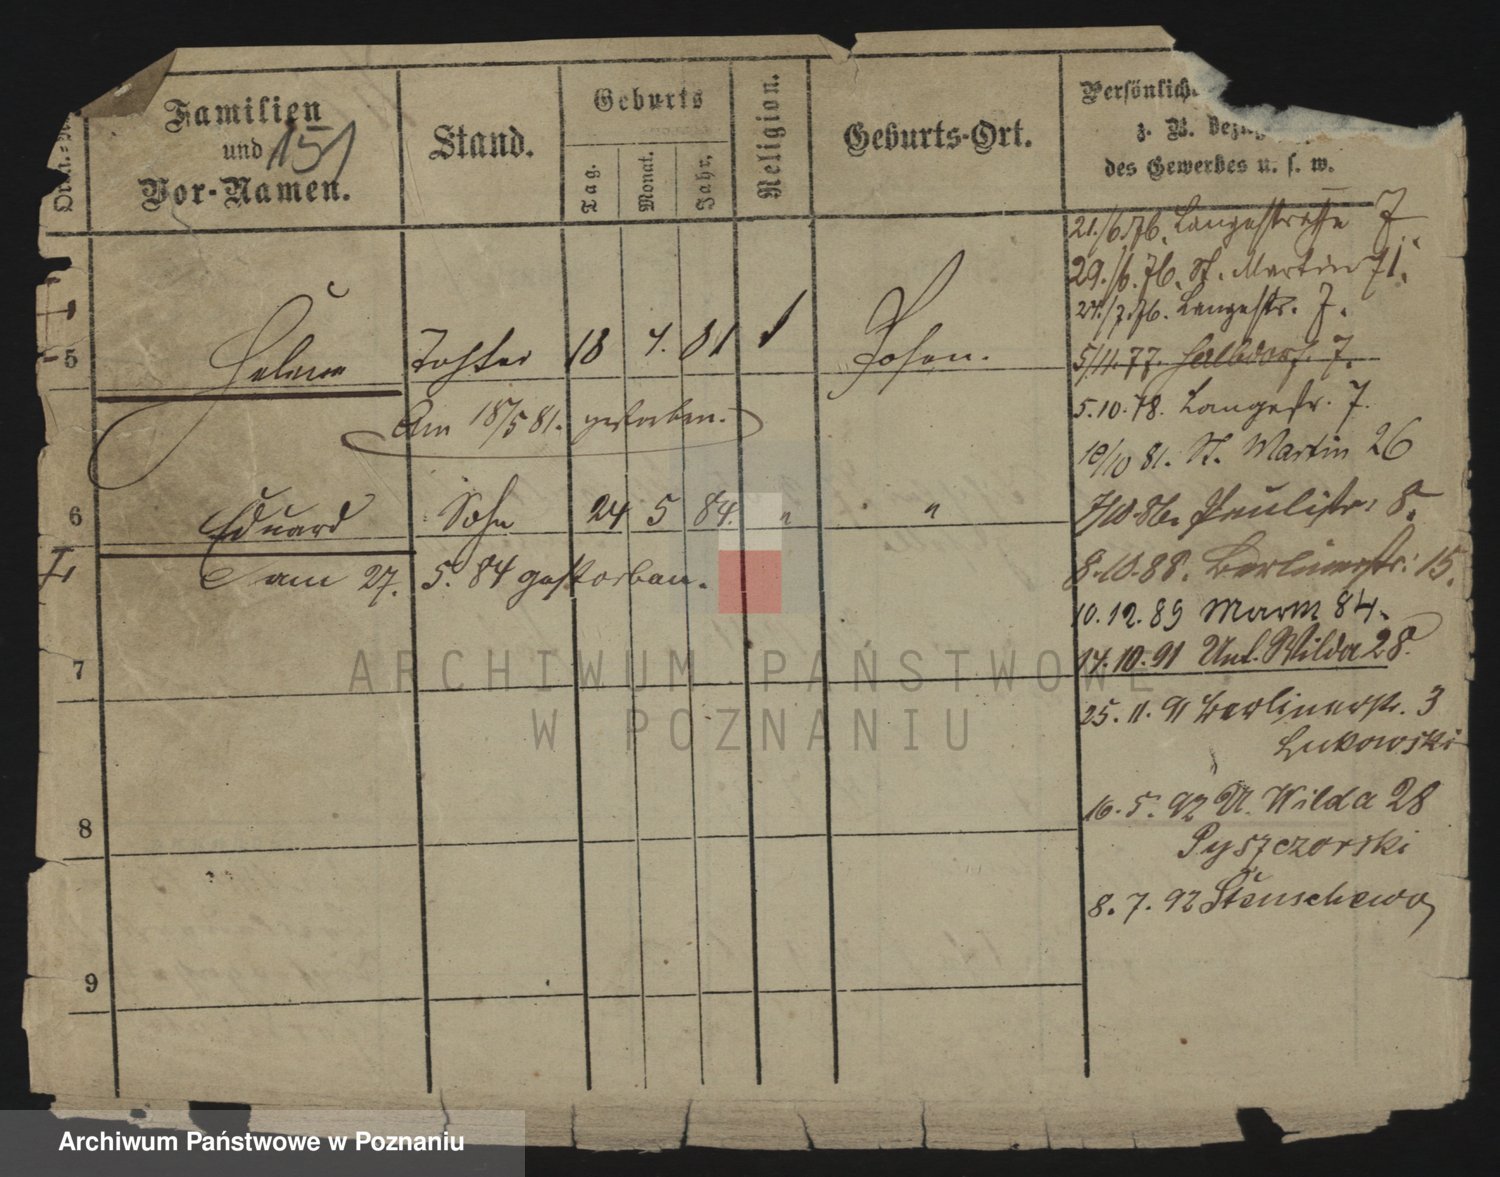 Familien
und
Vor-Namen.
151
Stand.
Geburts
Tag.
Monat.
Jahr.
Religion.
Geburts-Ort.
Persönlich
z. B. bezüg
des Gewerbes u. s. w.
21./6.76. Langestrasse 7.
29./6.76. St. Martin 71.
24./7.76. Langestr. 7.
5 Helene Tochter 18 4. 81 Posen.
5/11.77. Halbdorfstr. 7.
Am 18/5 81. gestorben.
5.10.78. Langestr. 7.
10/10 81. St. Martin 26
6 Eduard Sohn 24 5 84. " "
7/10.86. Paulistr. 8.
am 27. 5. 84 gestorben.
8.10.88. Berlinerstr. 15.
10.12.89 84.
17.10.91 Unt. Wilda 28.
7
25.11.91 Berlinerstr. 3
Lukowski
16.5.92 U. Wilda 28
8
Pyszczorski
8.7.92 Stenschewo
9
ARCHIWUM PAŃSTWOWE
W POZNANIU
Archiwum Państwowe w Poznaniu